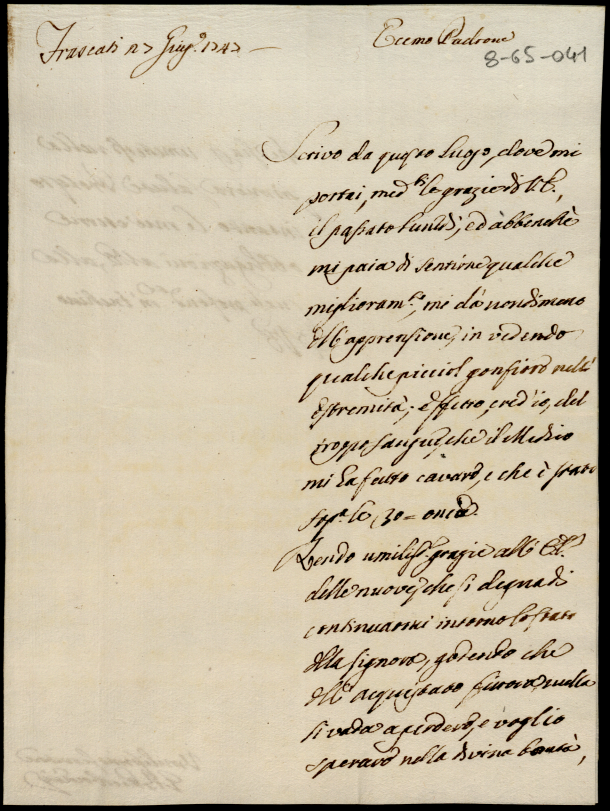 Frascati 27 Giug.º 1747
Eccmo Padrone
8-65-041
Scrivo da questo luogo, dove mi
portai, med.te le grazie di V.E.,
il passato lunedì, ed abbenchè
mi paia di sentirne qualche
miglioram.to, mi dà nondimeno
dell'apprensione, in vedendo
qualche picciol gonfiore nell'
estremità; effetto, cred'io, del
troppo sangue, che il Medico
mi ha fatto cavare, e che è stato
sop.a le 30= oncie.
Rendo umiliss.e grazie all'E.V.
delle nuove, che si degna di
continuarmi intorno lo stato
della signora, godendo che
dell' acquistato finora nulla
si vada a perdere, e voglio
sperare nella divina bontà,